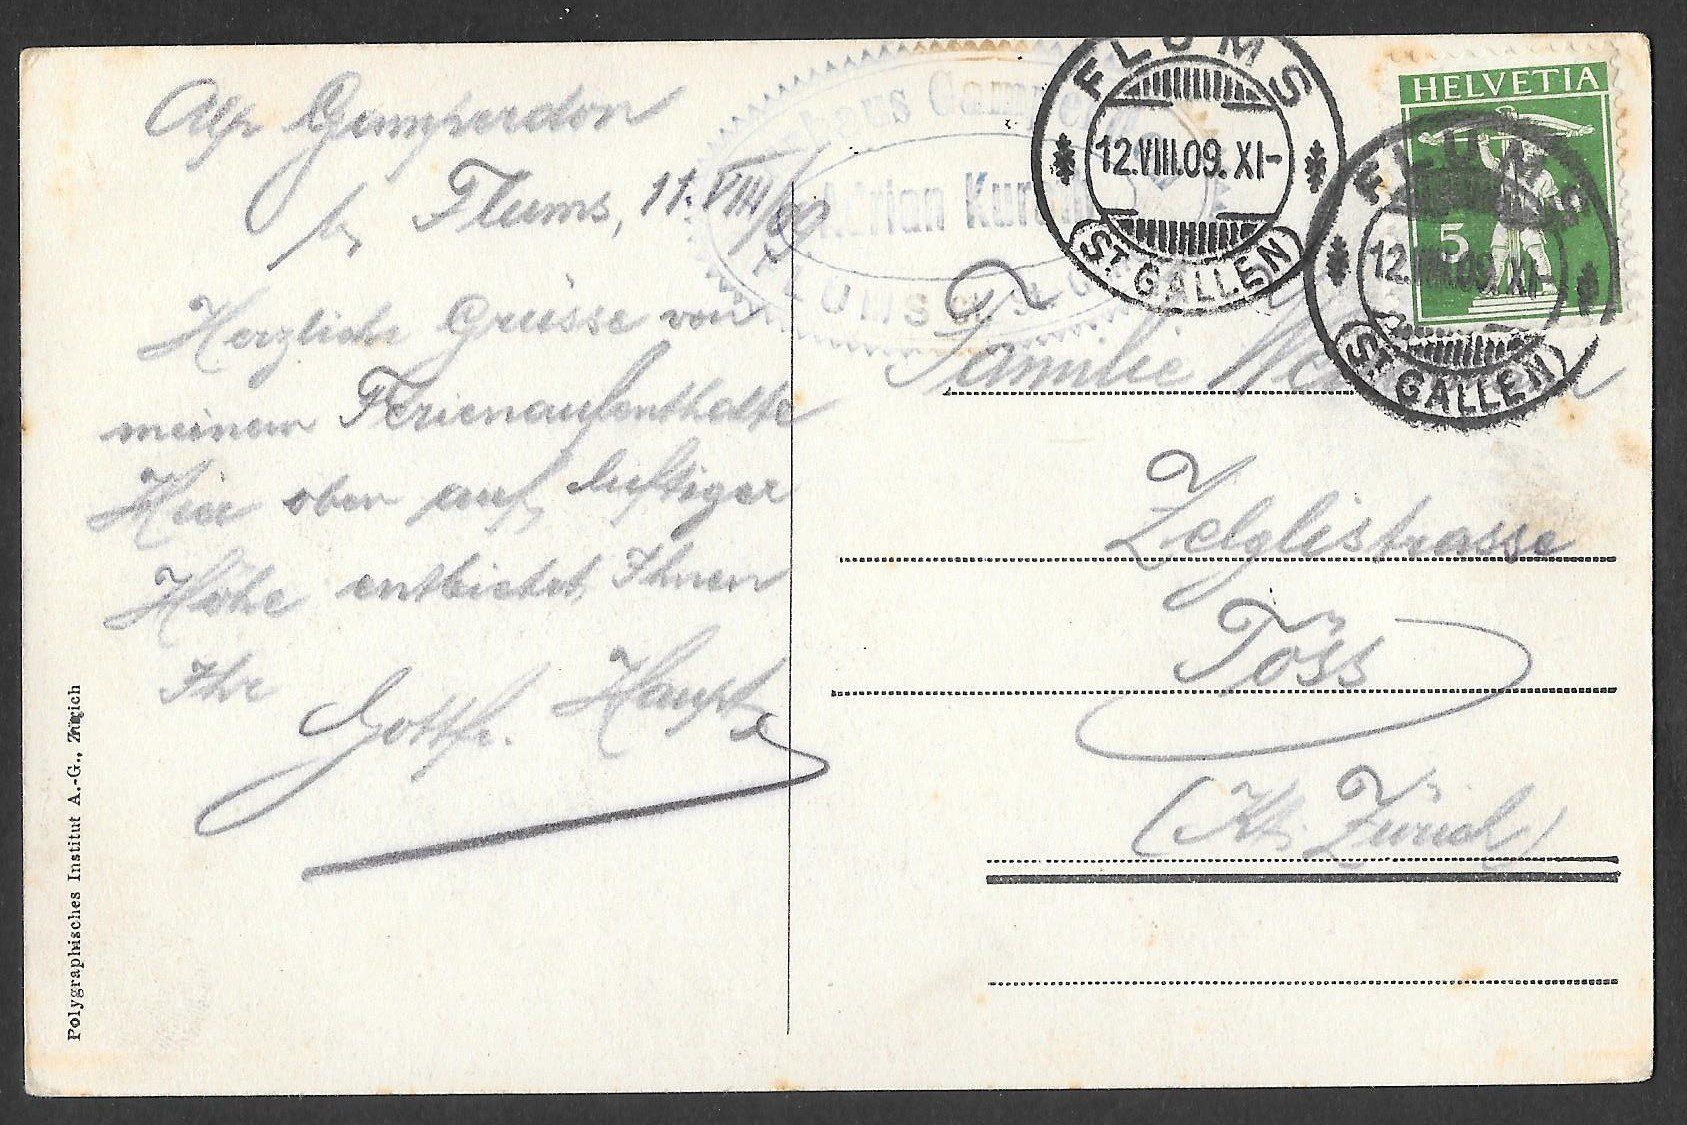 Alp Gamperdon
bei Flums, 11.VIII/09
Herzliche Grüsse von
meinem Ferienaufenthalte
Hier oben auf luftiger
Höhe entbietet Ihnen
Ihr
Gottfr. Haupt
Polygraphisches Institut A.-G., Zürich
Adrian
FLUMS
FLUMS
12.VIII.09.XI-
ST. GALLEN
HELVETIA
5
FLUMS
12.VIII.09.XI-
ST. GALLEN
Familie
Zelglistrasse
Töss
(Kt. Zürich)